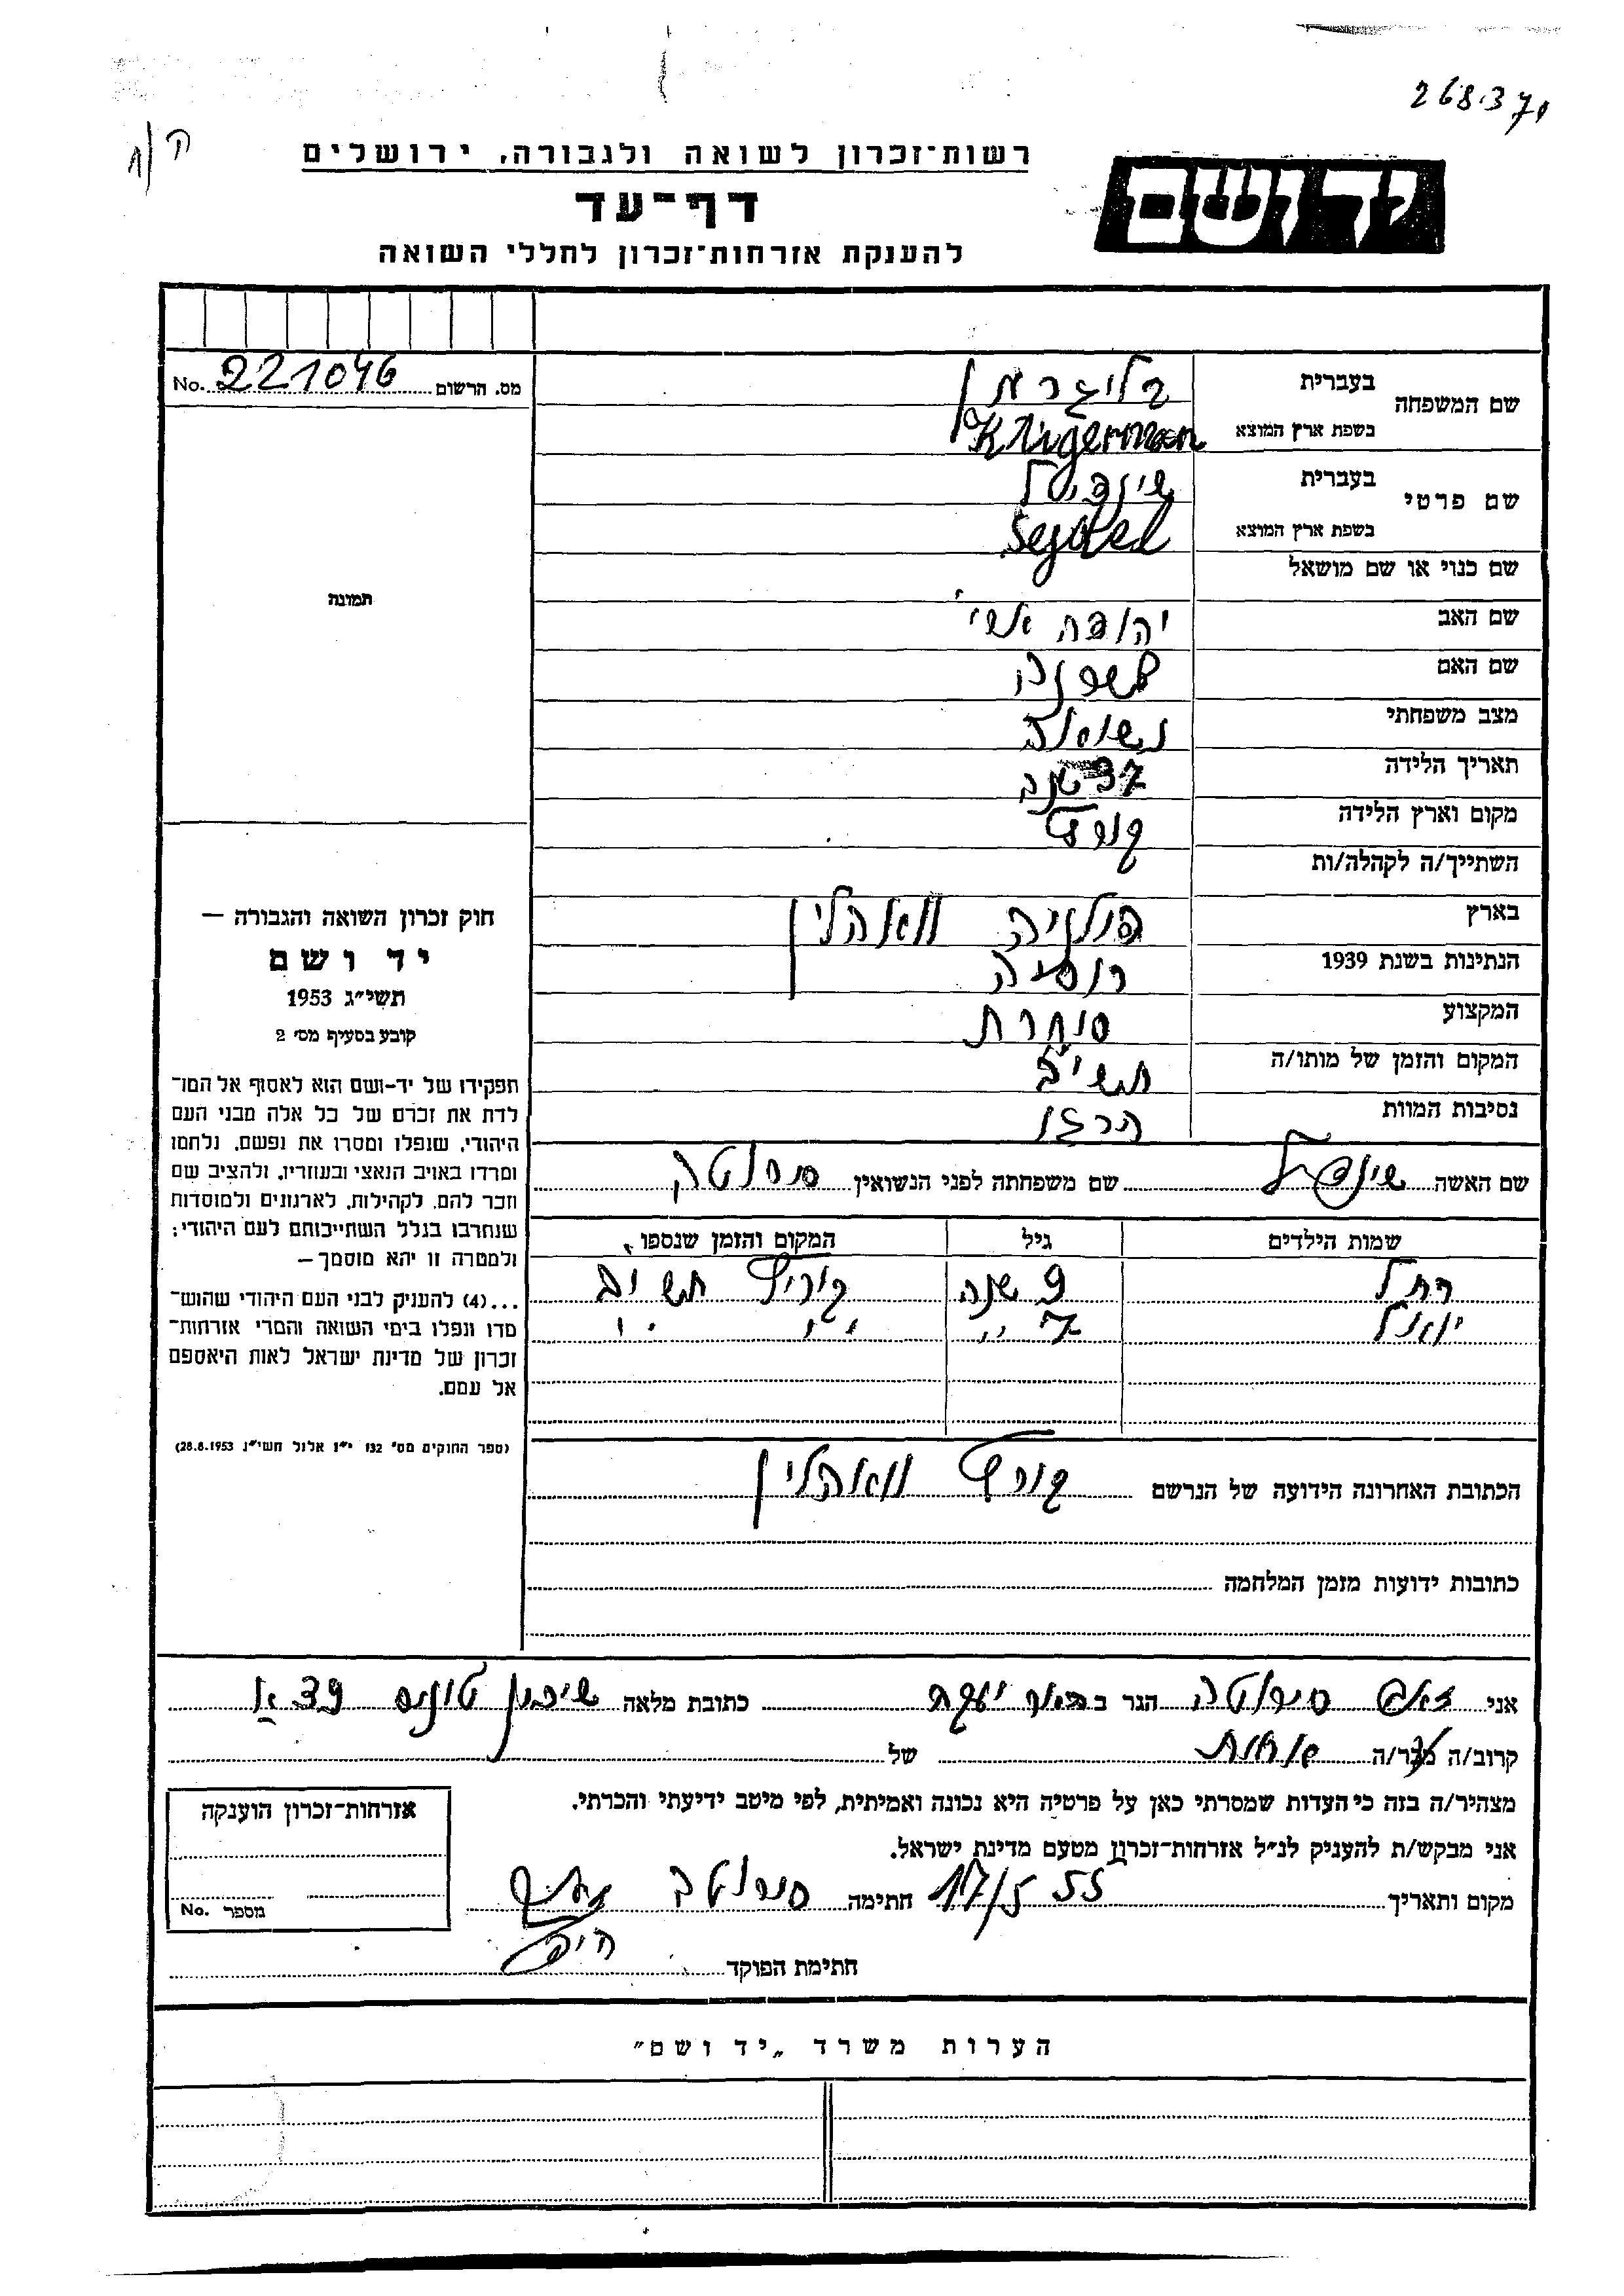 268.371
ק/1
רשות־זכרון לשואה ולגבורה, ירושלים
יד ושם
דף־עד
להענקת אזרחות־זכרון לחללי השואה
מס. הרשום No. 221046
שם המשפחה
בעברית
בשפת ארץ המוצא Kligerman
שם פרטי
בעברית שינדיל
בשפת ארץ המוצא
שם כנוי או שם מושאל
שם האב יהודה
שם האם
מצב משפחתי נשואה
תאריך הלידה 37 שנה
מקום וארץ הלידה קוריץ
השתייך/ה לקהלה/ות
בארץ פולניה וואהלין
הנתינות בשנת 1939 רוסיה
המקצוע סוחרת
המקום והזמן של מותו/ה תש״ב
נסיבות המוות הרגו
שם האשה שינדיל שם משפחתה לפני הנשואין
שמות הילדים גיל המקום והזמן שנספו
רחל 9 שנה קוריץ תש״ב
יואל 7 ״ ״ ״
הכתובת האחרונה הידועה של הנרשם קוריץ וואהלין
כתובות ידועות מזמן המלחמה
תמונה
חוק זכרון השואה והגבורה —
יד ושם
תשי״ג 1953
קובע בסעיף מס׳ 2
תפקידו של יד-ושם הוא לאסוף אל המו־
לדת את זכרם של כל אלה מבני העם
היהודי, שנפלו ומסרו את נפשם, נלחמו
ומרדו באויב הנאצי ובעוזריו, ולהציב שם
וזכר להם, לקהילות, לארגונים ולמוסדות
שנחרבו בגלל השתייכותם לעם היהודי;
ולמטרה זו יהא מוסמך —
...(4) להעניק לבני העם היהודי שהוש־
מדו ונפלו בימי השואה והמרי אזרחות־
זכרון של מדינת ישראל לאות היאספם
אל עמם.
(ספר החוקים מס׳ 132 י״ז אלול תשי״ג 28.8.1953)
אני זאב הגר ב באר יעקב כתובת מלאה שיכון
קרוב/ה מכר/ה אחות של
מצהיר/ה בזה כי העדות שמסרתי כאן על פרטיה היא נכונה ואמיתית, לפי מיטב ידיעתי והכרתי.
אני מבקש/ת להעניק לנ״ל אזרחות־זכרון מטעם מדינת ישראל.
מקום ותאריך 17/5 55 חתימה
חתימת הפוקד
אזרחות־זכרון הוענקה
מספר No.
הערות משרד „יד ושם״